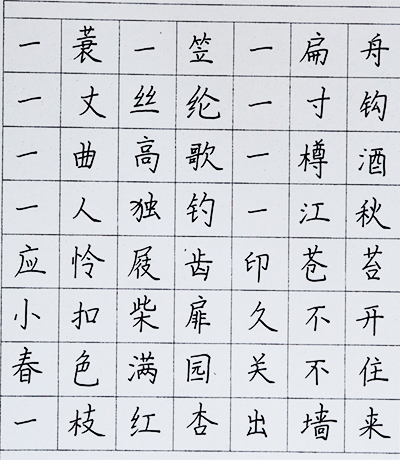 一蓑一笠一扁舟
一丈丝纶一寸钩
一曲高歌一樽酒
一人独钓一江秋
应怜屐齿印苍苔
小扣柴扉久不开
春色满园关不住
一枝红杏出墙来